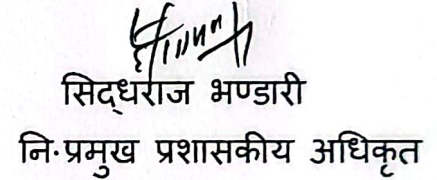 सिद्धराज भण्डारी
नि.प्रमुख प्रशासकीय अधिकृत